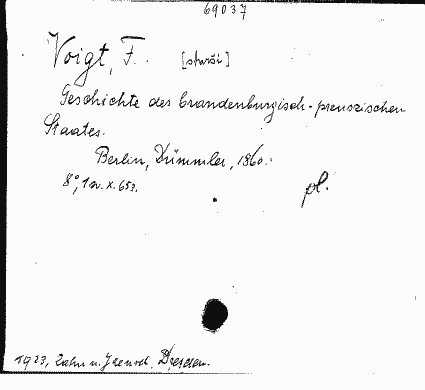 69037
Voigt, F. [starší]
Geschichte des brandenburgisch-preuszischen
Staates.
Berlin, Dümmler, 1860.
8°, 1 sv. x. 653.
pl.
1923, Zahn u. Jaensch, Dresden.